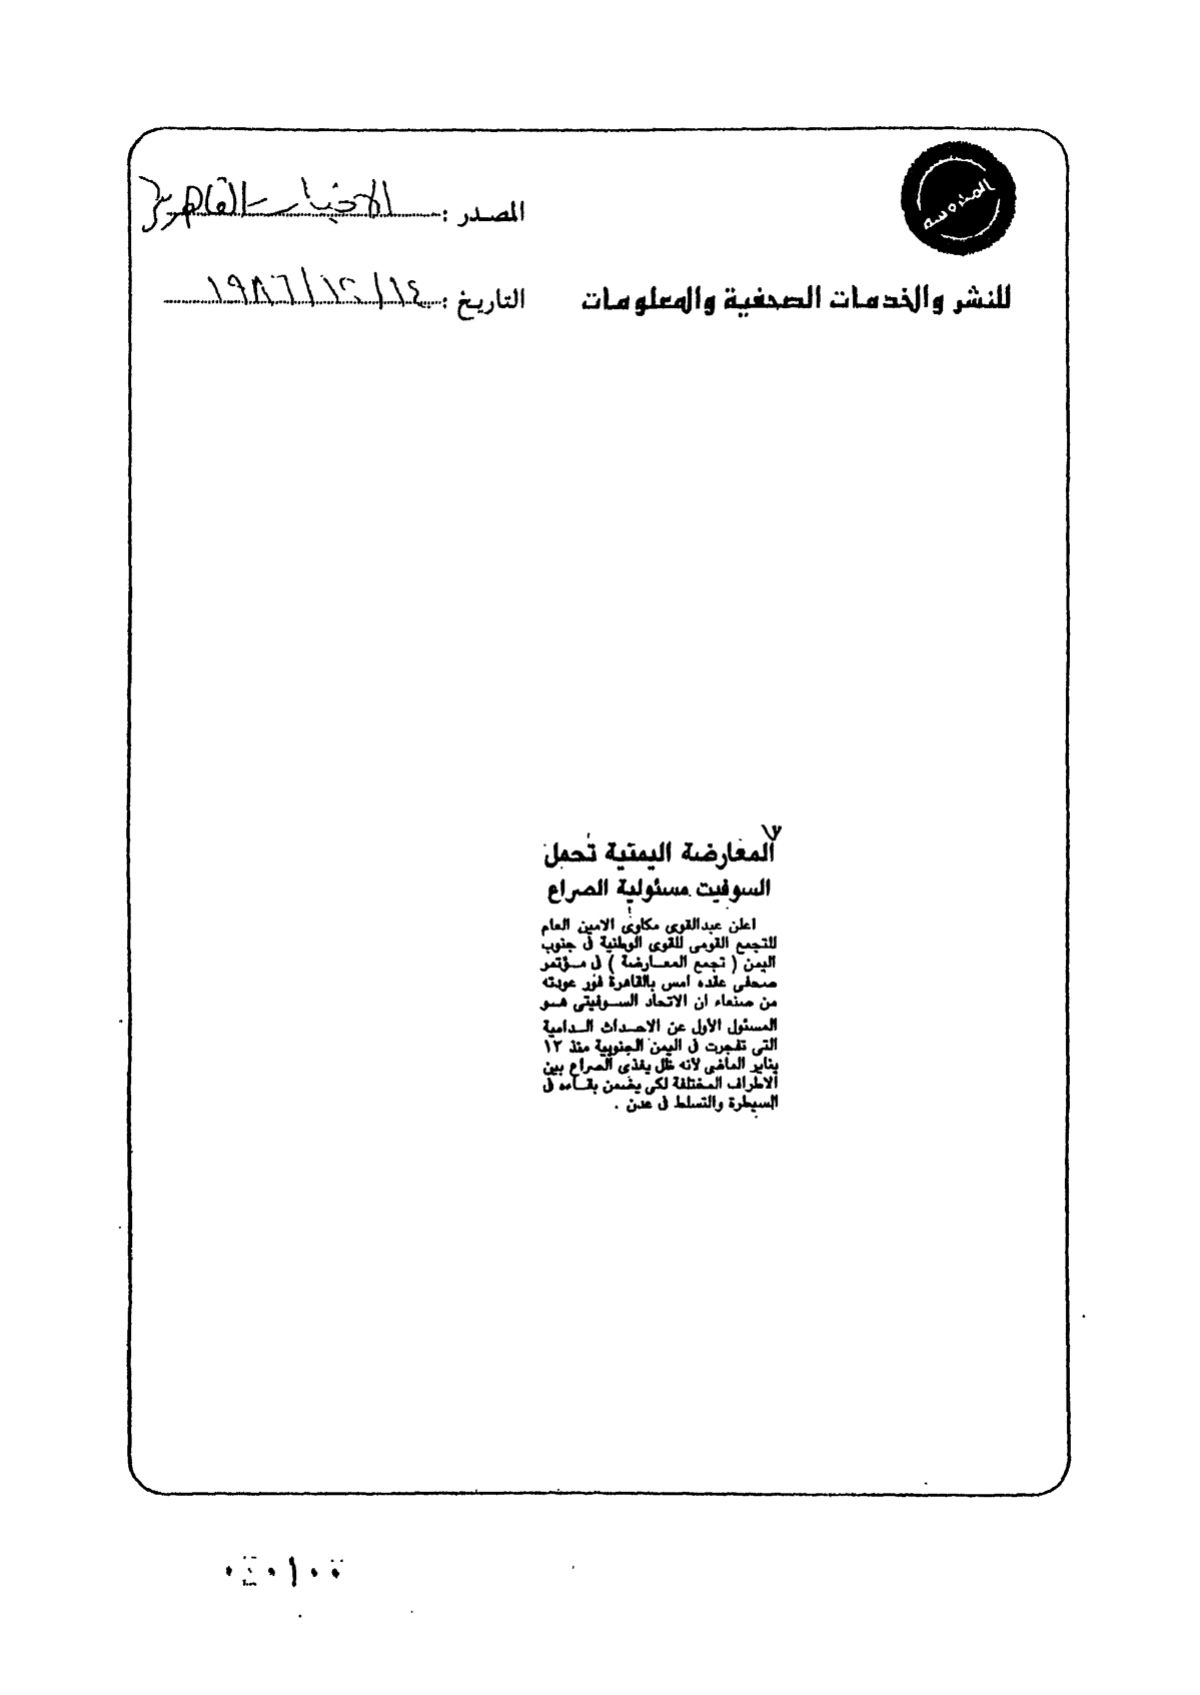 المصدر : الاخبار - القاهرية
المحروسة
التاريخ : ١٩٨٦/١٢/١٤
للنشر والخدمات الصحفية والمعلومات
المعارضة اليمنية تحمل
السوفيت مسئولية الصراع
اعلن عبدالقوى مكاوى الامين العام
للتجمع القومى للقوى الوطنية فى جنوب
اليمن ( تجمع المعارضة ) فى مؤتمر
صحفى عقده امس بالقاهرة فور عودته
من صنعاء ان الاتحاد السوفيتى هو
المسئول الأول عن الاحداث الدامية
التى تفجرت فى اليمن الجنوبية منذ ١٣
يناير الماضى لانه ظل يغذى الصراع بين
الاطراف المختلفة لكى يضمن بقاءه فى
السيطرة والتسلط فى عدن .